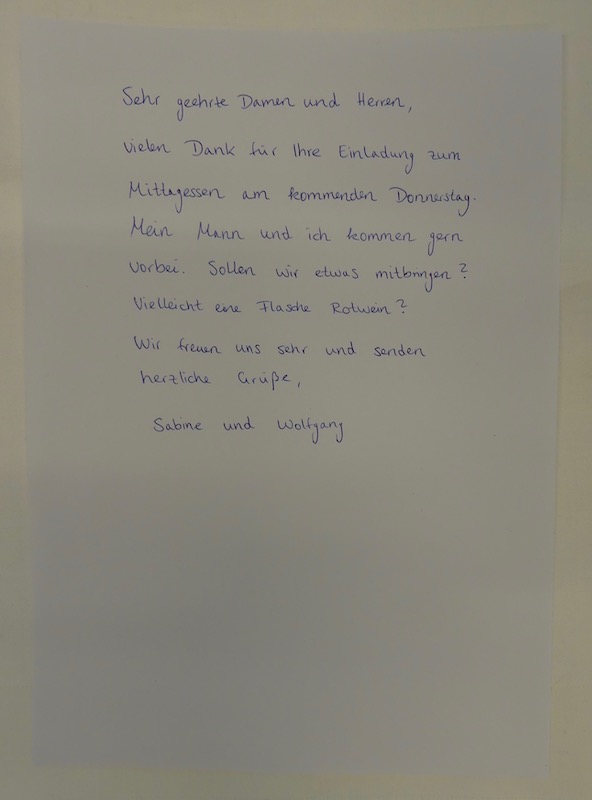 Sehr geehrte Damen und Herren,
vielen Dank für Ihre Einladung zum
Mittagessen am kommenden Donnerstag.
Mein Mann und ich kommen gern
vorbei. Sollen wir etwas mitbringen?
Vielleicht eine Flasche Rotwein?
Wir freuen uns sehr und senden
herzliche Grüße,
Sabine und Wolfgang